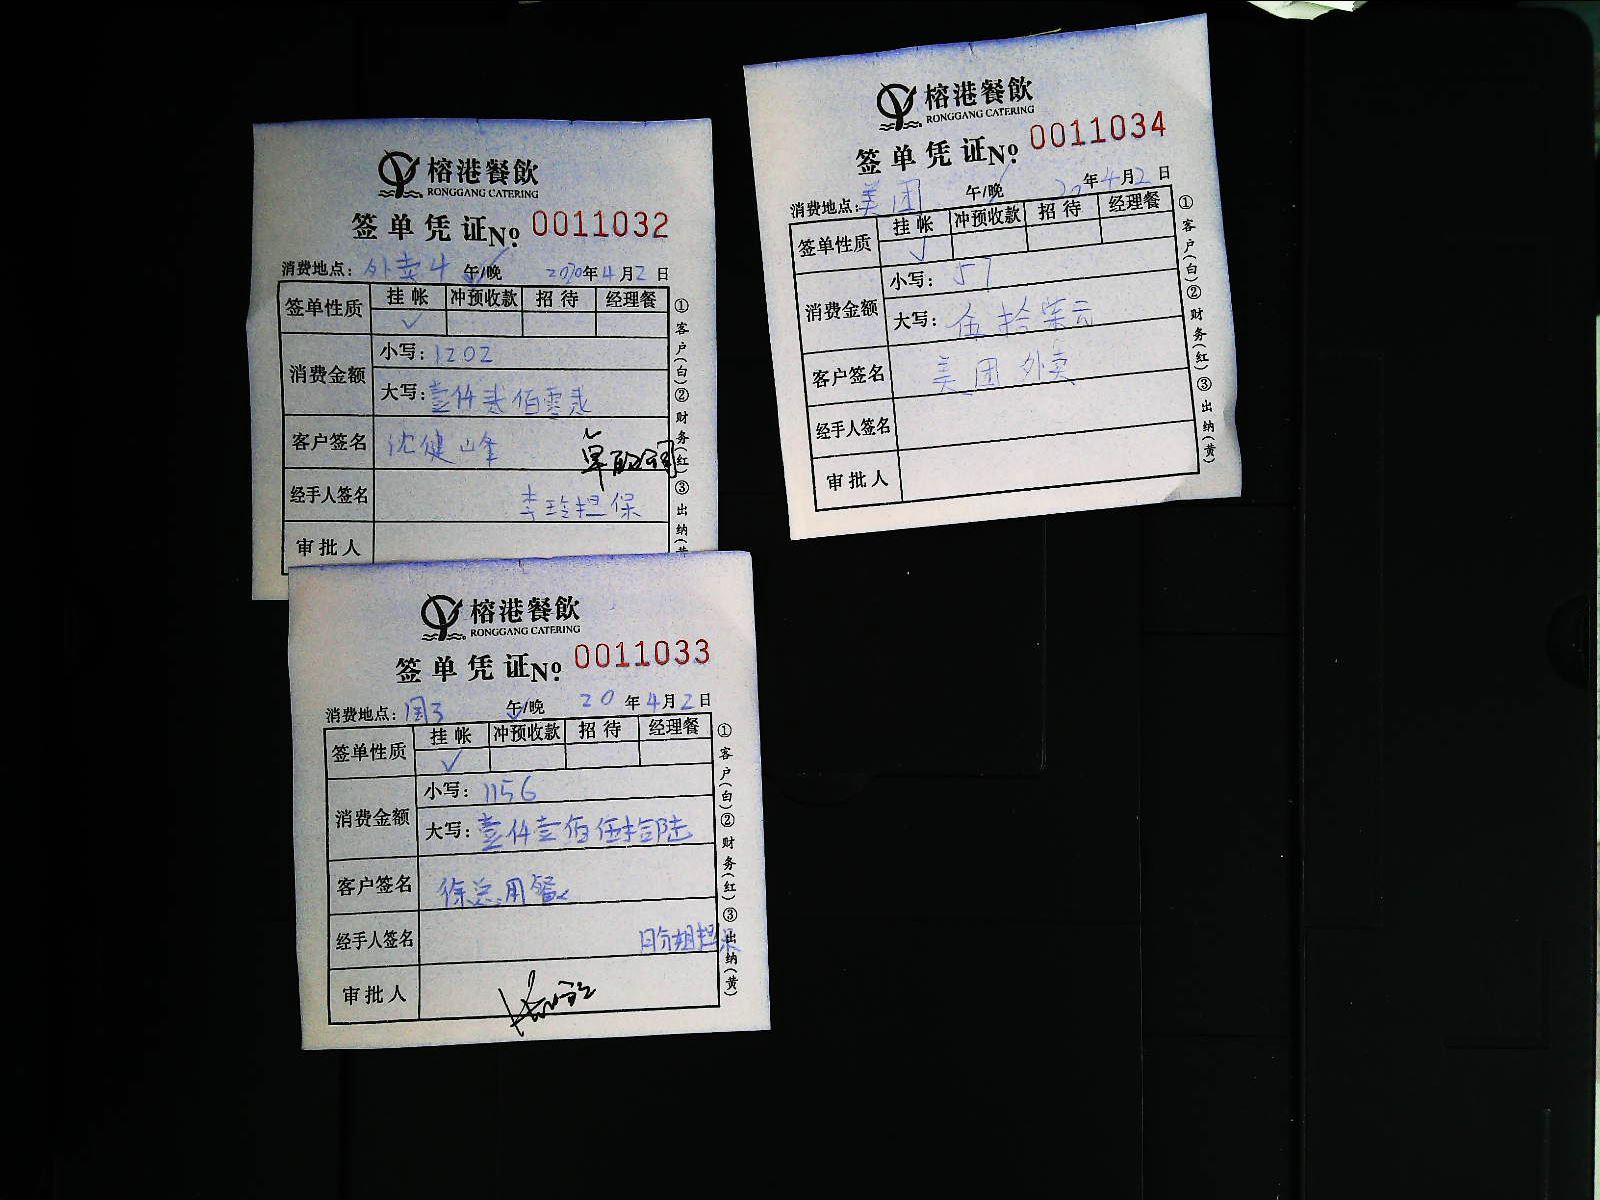 榕港餐飲
RONGGANG CATERING
签单凭证No. 0011032
消费地点: 外卖4 午/晚 2020年4月2日
签单性质 挂帐 冲预收款 招待 经理餐
✓
消费金额 小写: 1202
大写: 壹仟贰佰零贰
客户签名 沈健峰
经手人签名 李玲担保
审批人
①客户(白)②财务(红)③出纳(黄
榕港餐飲
RONGGANG CATERING
签单凭证No. 0011034
消费地点: 美团 午/晚 20年4月2日
签单性质 挂帐 冲预收款 招待 经理餐
✓
消费金额 小写: 57
大写: 伍拾柒元
客户签名 美团外卖
经手人签名
审批人
①客户(白)②财务(红)③出纳(黄)
榕港餐飲
RONGGANG CATERING
签单凭证No. 0011033
消费地点: 国3 午/晚 20年4月2日
签单性质 挂帐 冲预收款 招待 经理餐
✓
消费金额 小写: 1156
大写: 壹仟壹佰伍拾陆
客户签名 徐总用餐
经手人签名 担保
审批人
①客户(白)②财务(红)③出纳(黄)